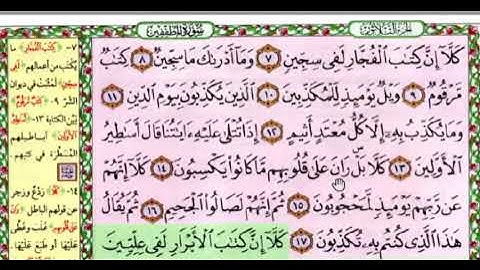 سُورَةُ المُطَفِّفِينَ
كَلَّآ إِنَّ كِتَٰبَ ٱلْفُجَّارِ لَفِى سِجِّينٍ ٧ وَمَآ أَدْرَىٰكَ مَا سِجِّينٌ ٨ كِتَٰبٌ
مَّرْقُومٌ ٩ وَيْلٌ يَوْمَئِذٍ لِّلْمُكَذِّبِينَ ١٠ ٱلَّذِينَ يُكَذِّبُونَ بِيَوْمِ ٱلدِّينِ ١١
وَمَا يُكَذِّبُ بِهِۦٓ إِلَّا كُلُّ مُعْتَدٍ أَثِيمٍ ١٢ إِذَا تُتْلَىٰ عَلَيْهِ ءَايَٰتُنَا قَالَ أَسَٰطِيرُ
ٱلْأَوَّلِينَ ١٣ كَلَّا بَلْ رَانَ عَلَىٰ قُلُوبِهِم مَّا كَانُوا۟ يَكْسِبُونَ ١٤ كَلَّآ إِنَّهُمْ
عَن رَّبِّهِمْ يَوْمَئِذٍ لَّمَحْجُوبُونَ ١٥ ثُمَّ إِنَّهُمْ لَصَالُوا۟ ٱلْجَحِيمِ ١٦ ثُمَّ يُقَالُ
هَٰذَا ٱلَّذِى كُنتُم بِهِۦ تُكَذِّبُونَ ١٧ كَلَّآ إِنَّ كِتَٰبَ ٱلْأَبْرَارِ لَفِى عِلِّيِّينَ
٧- كِتَٰبَ الفُجَّارِ ما
يُكْتَبُ من أعمالهم
الشَّرّ ٩-
بَيِّنُ الكتابة ١٣-
الأَوَّلِينَ أباطيلهم
المُسَطَّرَة في كتبهم
١٤- كَلَّا رَدْعٌ وزجر
عن قولهم الباطل